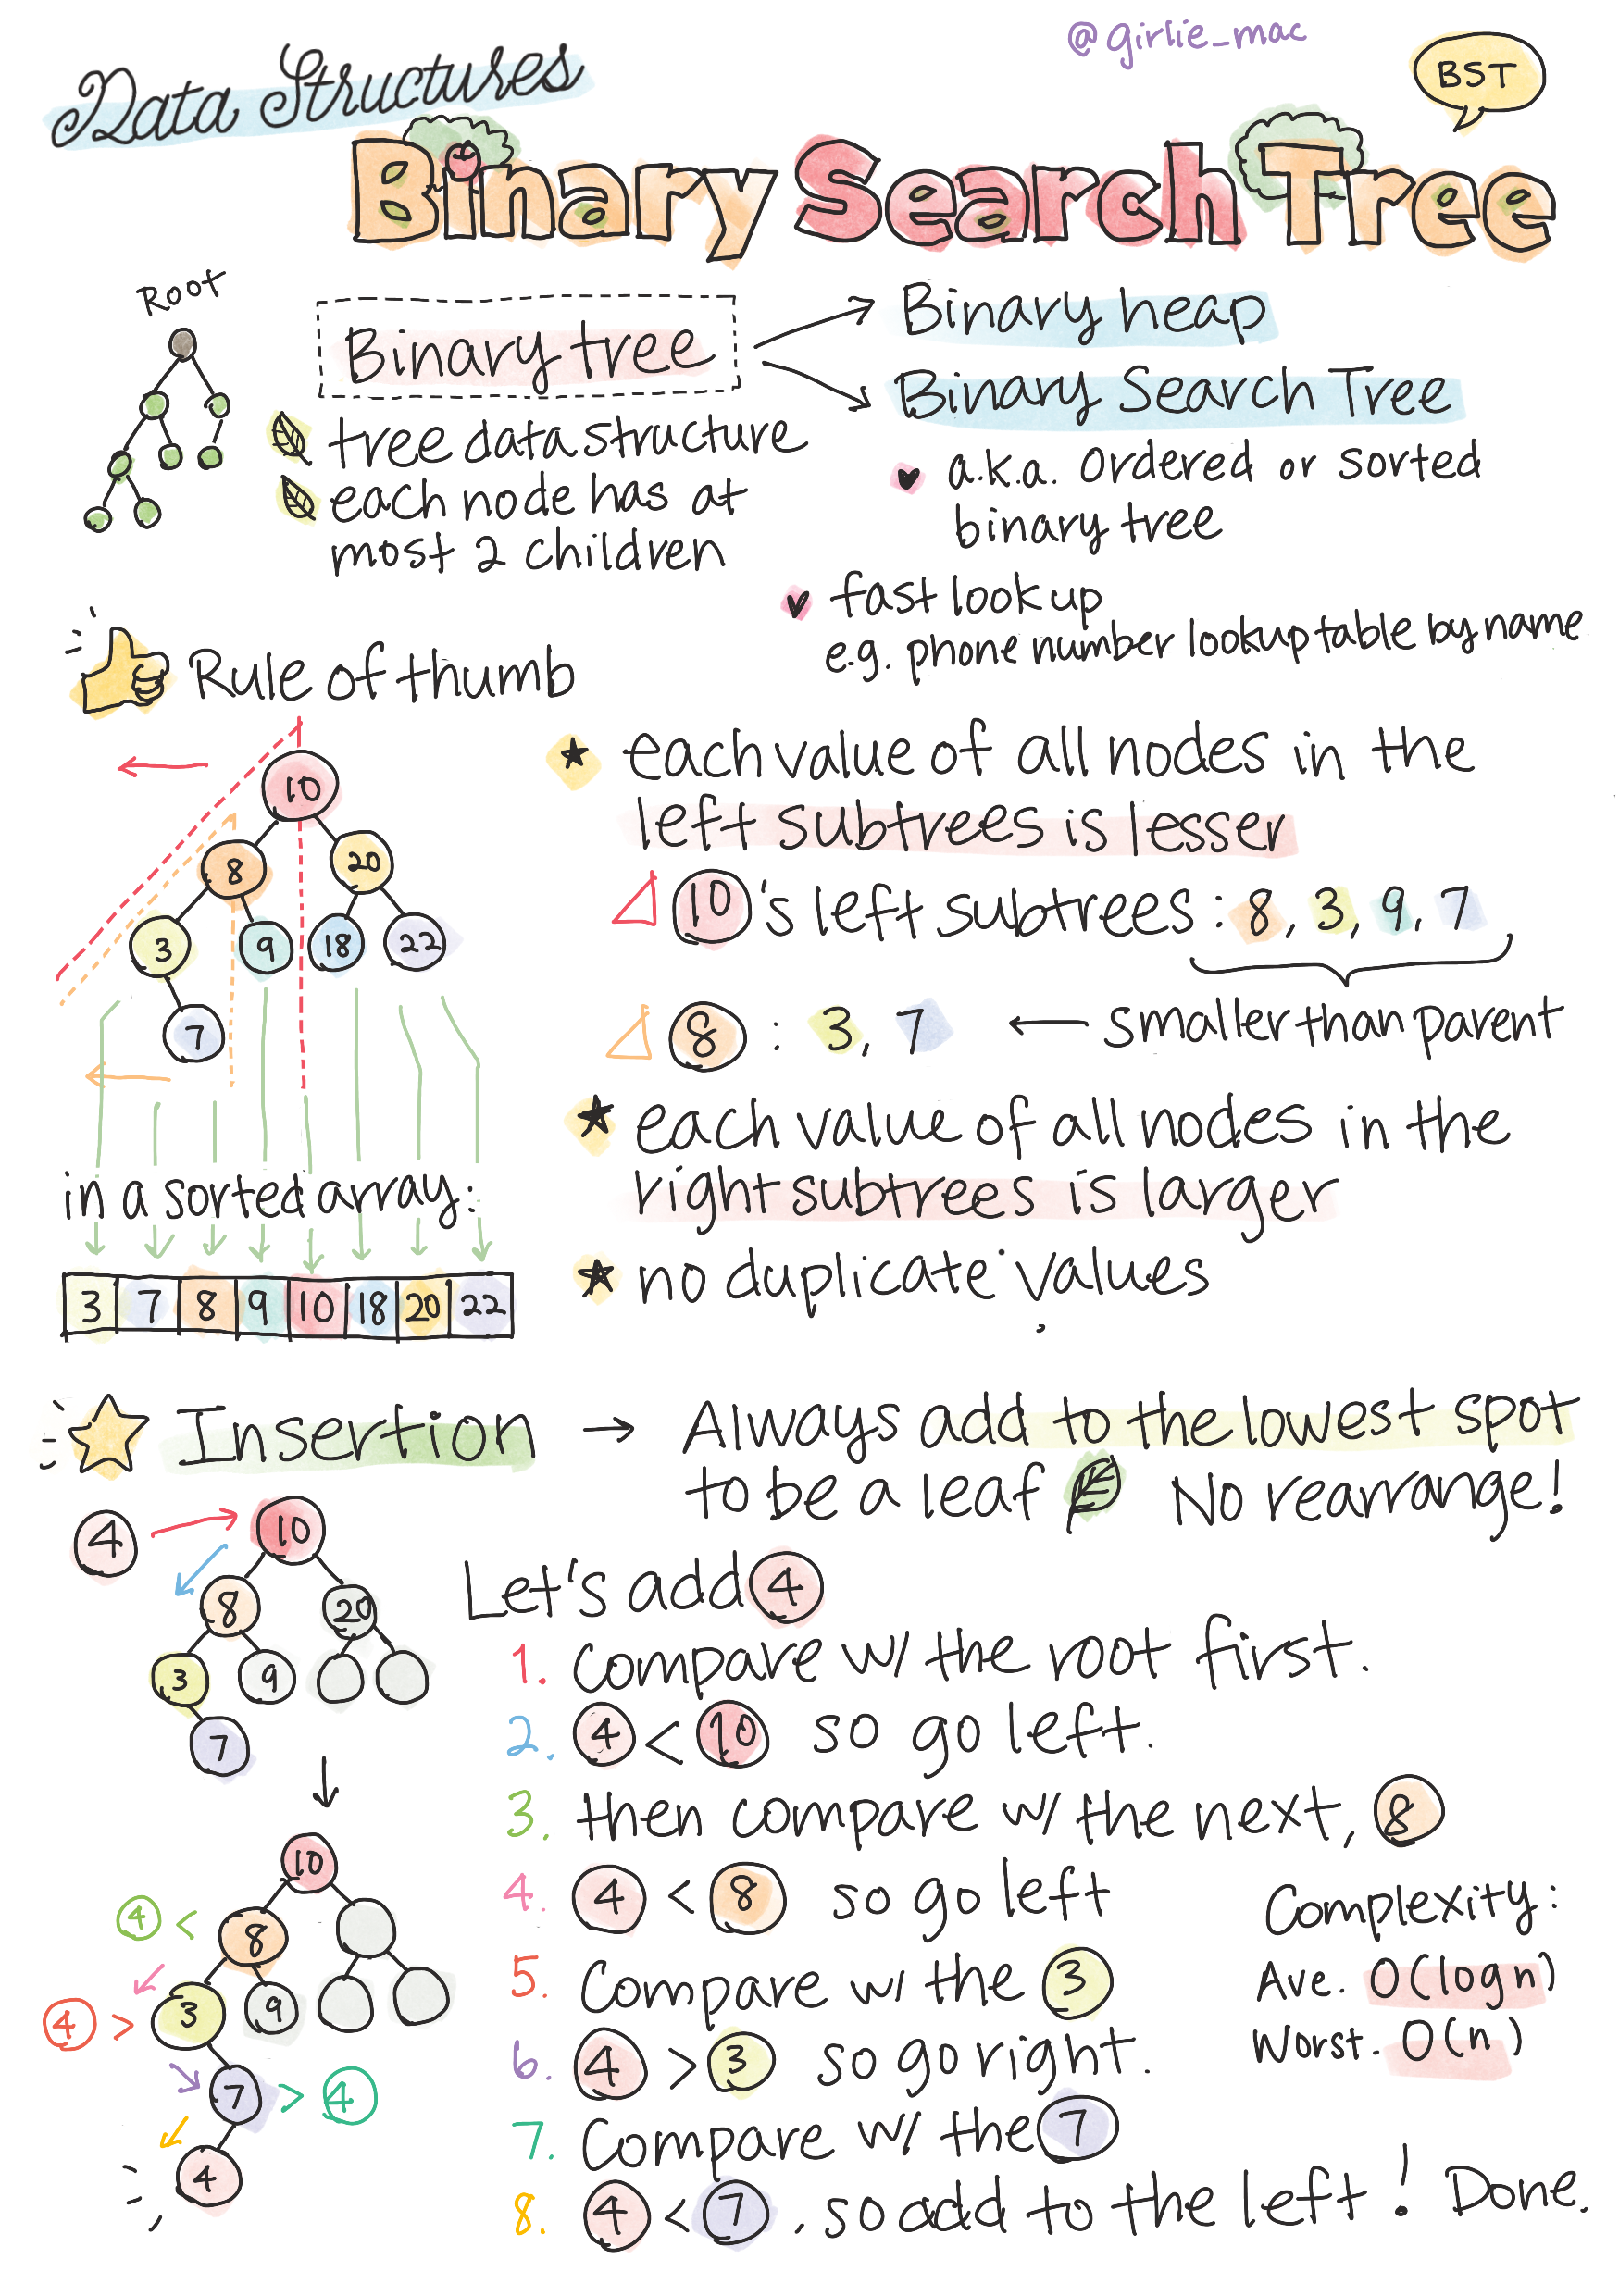 @girlie_mac
Data Structures
BST
Binary Search Tree
Root
Binary tree
tree data structure
each node has at
most 2 children
Binary heap
Binary Search Tree
a.k.a. Ordered or sorted
binary tree
fast look up
e.g. phone number lookup table by name
Rule of thumb
10
8 20
3 9 18 22
7
in a sorted array:
3 7 8 9 10 18 20 22
each value of all nodes in the
left subtrees is lesser
10's left subtrees : 8, 3, 9, 7
8 : 3, 7 ← smaller than parent
each value of all nodes in the
right subtrees is larger
no duplicate values
Insertion → Always add to the lowest spot
to be a leaf No rearrange!
4 10
8 20
3 9
7
10
4 < 8
4 > 3 9
7 > 4
4
Let's add 4
1. Compare w/ the root first.
2. 4 < 10 so go left.
3. then compare w/ the next, 8
4. 4 < 8 so go left
5. Compare w/ the 3
6. 4 > 3 so go right.
7. Compare w/ the 7
8. 4 < 7, so add to the left! Done.
Complexity:
Ave. O(log n)
Worst. O(n)